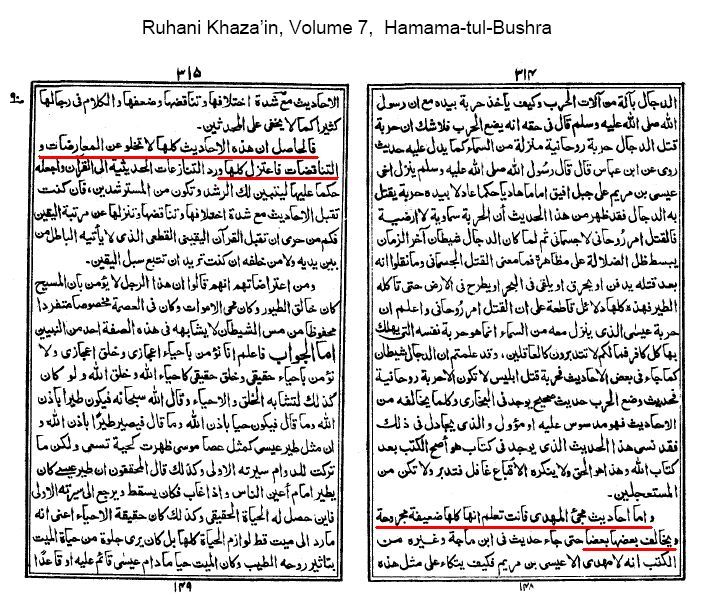 Ruhani Khaza’in, Volume 7, Hamama-tul-Bushra
٣١٤
الدجال بآلة من آلات الحرب وكيف يأخذ حربة بيده مع ان رسول
الله صلى الله عليه وسلم قال فى حقه انه يضع الحرب فلا شك ان حربة
قتل الدجال حربة روحانية منزلة من السماء كما يدل عليه حديث
روى عن ابن عباس قال قال رسول الله صلى الله عليه وسلم ينزل اخى
عيسى بن مريم على جبل افيق اماما هاديا حكما عادلا بيده حربة يقتل
به الدجال فقد ظهر من هذا الحديث أن الحربة سماوية لا ارضية
فالقتل امر روحانى لا جسمانى ثم لما كان الدجال شيطان آخر الزمان
يبسط ظل الضلالة على مظاهره فما معنى القتل الجسمانى وما نقلوا انه
بعد قتله يدفن او يحرق او يلقى فى البحر او يطرح فى الارض حتى تاكله
الطير فهذه كلها دلائل قاطعة على ان القتل امر روحانى واعلم ان
حربة عيسى الذى ينزل معه من السماء انما هو حربة نفسه التى يهلك
بها كل كافر فما لكم لا تتدبرون كالعاقلين، وقد علمتم ان الدجال شيطان
كما جاء فى بعض الاحاديث فحربة قتل ابليس لا تكون الا حربة روحانية
فحديث وضع الحرب حديث صحيح يوجد فى البخارى وكلما يخالفه من
الاحاديث فهو مدسوس عليه او مؤول والذى يجادل فى ذلك
فقد نسى هذا الحديث الذى يوجد فى كتاب هو أصح الكتب بعد
كتاب الله وهذا هو الحق ولا ينكره الا غافل فتدبر ولا تكن من
المستعجلين۔
واما احاديث مجئ المهدى فانت تعلم انها كلها ضعيفة مجروحة
ويخالف بعضها بعضا حتى جاء حديث فى ابن ماجة وغيره من
الكتب انه لا مهدى الا عيسى بن مريم فكيف يتكاء على مثل هذه
١٤٨
٣١٥
٩٠
الاحاديث مع شدة اختلافها وتناقضها وضعفها والكلام فى رجالها
كثير كما لا يخفى على المحدثين۔
فالحاصل ان هذه الاحاديث كلها لا تخلو عن المعارضات و
التناقضات فاعتزل كلها ورد التنازعات الحديثية الى القرآن واجعله
حكما عليها ليتبين لك الرشد وتكون من المسترشدين، فان كنت
تقبل الاحاديث مع شدة اختلافها وتناقضها وتنزلها عن مرتبة اليقين
فكم من حرى ان تقبل القرآن اليقينى القطعى الذى لا يأتيه الباطل من
بين يديه ولا من خلفه ان كنت تريد ان تتبع سبل اليقين۔
ومن اعتراضاتهم انهم قالوا ان هذا الرجل لا يؤمن بأن المسيح
كان خالق الطيور وكان محى الاموات وكان فى العصمة مخصوصا متفردا
محفوظا من مس الشيطان لا يشابهه فى هذه الصفة احد من النبيين
اما الجواب فاعلم انا نؤمن باحياء اعجازى وخلق اعجازى ولا
نؤمن باحياء حقيقى وخلق حقيقى كاحياء الله وخلق الله ولو كان
كذلك لتشابه الخلق والاحياء وقال الله سبحانه فيكون طيرا باذن
الله وما قال فيكون حيا باذن الله وما قال فيصير طيرا باذن الله و
ان مثل طير عيسى كمثل عصا موسى ظهرت كحية تسعى ولكن ما
تركت للدوام سيرته الاولى وكذلك قال المحققون ان طير عيسى كان
يطير امام أعين الناس واذا غاب فكان يسقط ويرجع الى سيرته الاولى
فاين حصل له الحياة الحقيقى وكذلك كان حقيقة الاحياء اعنى انه
ما رد الى ميت قط لوازم الحياة كلها بل كان يرى جلوة من حياة الميت
بتاثير روحه الطيب وكان الميت حيا ما دام عيسى قائم عليه او قاعدا
١٤٩